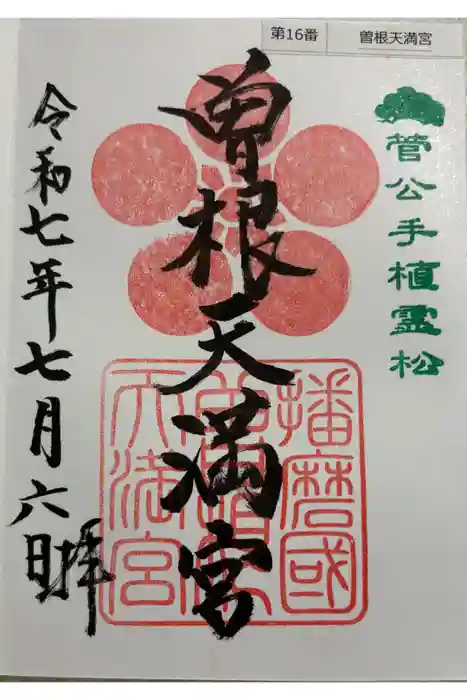 第16番
曽根天満宮
菅公手植霊松
曽根天満宮
播磨國
曽根
天満宮
令和七年七月六日拝